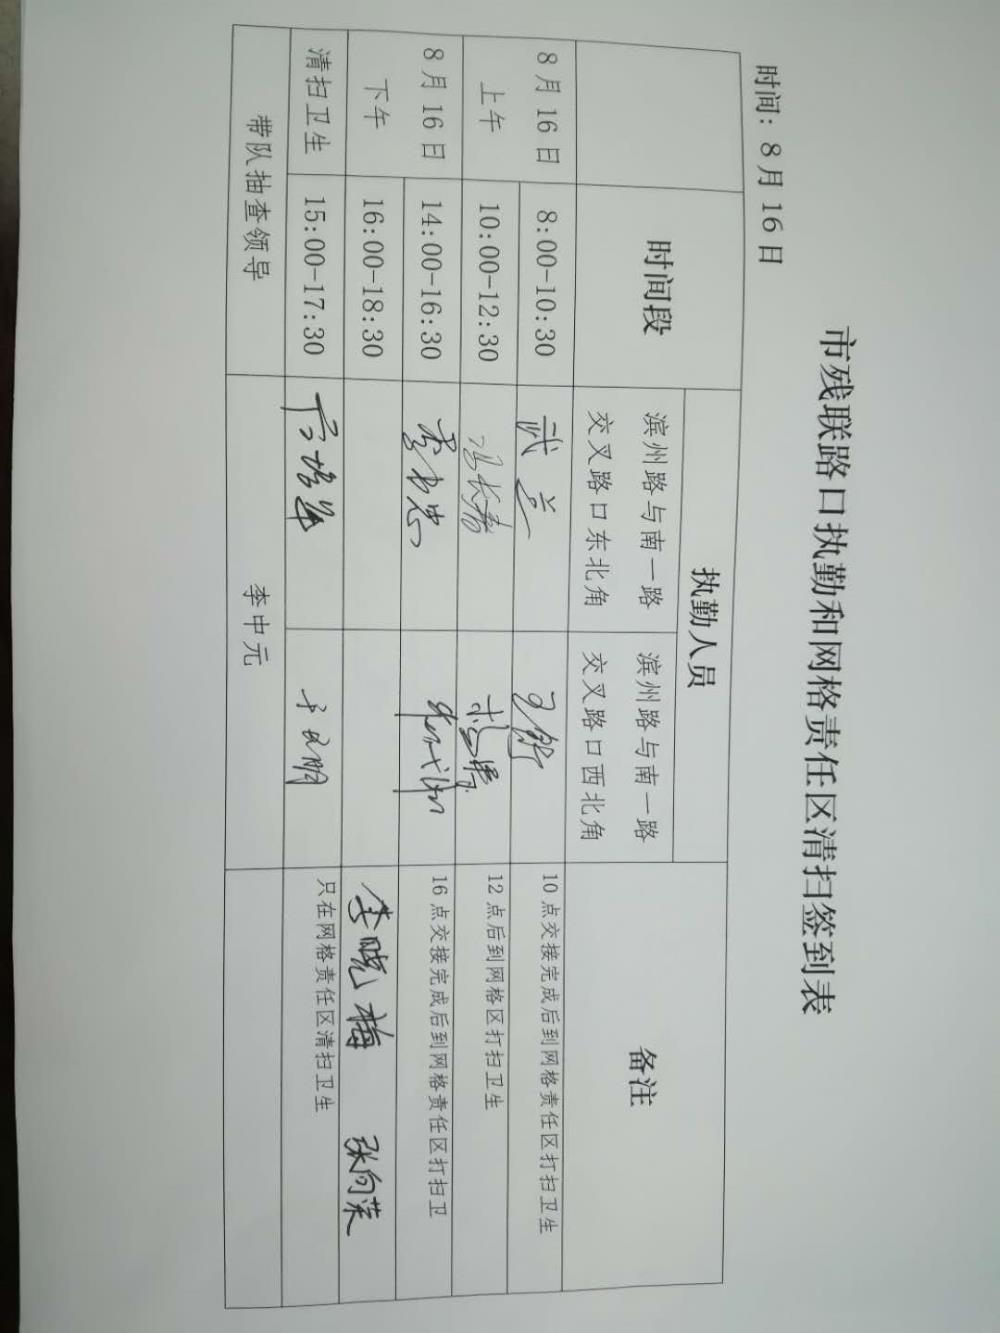 市残联路口执勤和网格责任区清扫签到表
时间：8月16日
时间段
执勤人员
备注
滨州路与南一路
交叉路口东北角
滨州路与南一路
交叉路口西北角
8月16日
上午
8:00-10:30
武兰
10点交接完成后到网格责任区打扫卫生
10:00-12:30
冯长春
12点后到网格区打扫卫生
8月16日
下午
14:00-16:30
16点交接完成后到网格责任区打扫卫
16:00-18:30
李晓梅 张向荣
清扫卫生
15:00-17:30
只在网格责任区清扫卫生
带队抽查领导
李中元